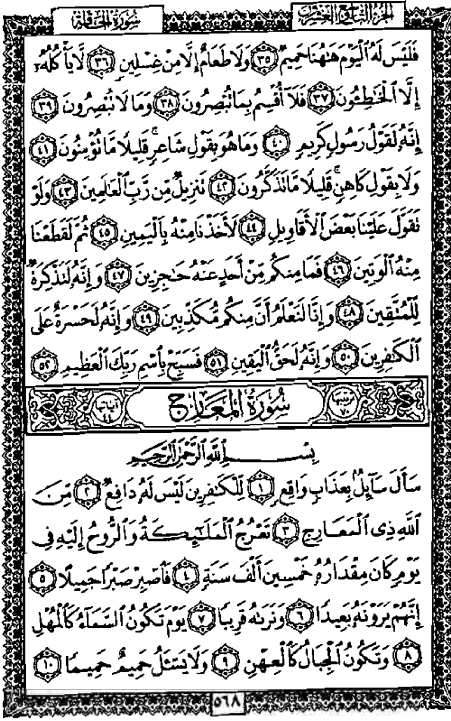 الجزء التاسع والعشرين سورة الحاقة
فَلَيْسَ لَهُ ٱلْيَوْمَ هَٰهُنَا حَمِيمٌ ٣٥ وَلَا طَعَامٌ إِلَّا مِنْ غِسْلِينٍ ٣٦ لَّا يَأْكُلُهُۥٓ
إِلَّا ٱلْخَٰطِـُٔونَ ٣٧ فَلَآ أُقْسِمُ بِمَا تُبْصِرُونَ ٣٨ وَمَا لَا تُبْصِرُونَ ٣٩
إِنَّهُۥ لَقَوْلُ رَسُولٍ كَرِيمٍ ٤٠ وَمَا هُوَ بِقَوْلِ شَاعِرٍ ۚ قَلِيلًا مَّا تُؤْمِنُونَ ٤١
وَلَا بِقَوْلِ كَاهِنٍ ۚ قَلِيلًا مَّا تَذَكَّرُونَ ٤٢ تَنزِيلٌ مِّن رَّبِّ ٱلْعَٰلَمِينَ ٤٣ وَلَوْ
تَقَوَّلَ عَلَيْنَا بَعْضَ ٱلْأَقَاوِيلِ ٤٤ لَأَخَذْنَا مِنْهُ بِٱلْيَمِينِ ٤٥ ثُمَّ لَقَطَعْنَا
مِنْهُ ٱلْوَتِينَ ٤٦ فَمَا مِنكُم مِّنْ أَحَدٍ عَنْهُ حَٰجِزِينَ ٤٧ وَإِنَّهُۥ لَتَذْكِرَةٌ
لِّلْمُتَّقِينَ ٤٨ وَإِنَّا لَنَعْلَمُ أَنَّ مِنكُم مُّكَذِّبِينَ ٤٩ وَإِنَّهُۥ لَحَسْرَةٌ عَلَى
ٱلْكَٰفِرِينَ ٥٠ وَإِنَّهُۥ لَحَقُّ ٱلْيَقِينِ ٥١ فَسَبِّحْ بِٱسْمِ رَبِّكَ ٱلْعَظِيمِ ٥٢
سُورَةُ المَعَارِج
بِسْمِ ٱللَّهِ ٱلرَّحْمَٰنِ ٱلرَّحِيمِ
سَأَلَ سَآئِلٌۢ بِعَذَابٍ وَاقِعٍ ١ لِّلْكَٰفِرِينَ لَيْسَ لَهُۥ دَافِعٌ ٢ مِّنَ
ٱللَّهِ ذِى ٱلْمَعَارِجِ ٣ تَعْرُجُ ٱلْمَلَٰٓئِكَةُ وَٱلرُّوحُ إِلَيْهِ فِى
يَوْمٍ كَانَ مِقْدَارُهُۥ خَمْسِينَ أَلْفَ سَنَةٍ ٤ فَٱصْبِرْ صَبْرًا جَمِيلًا ٥
إِنَّهُمْ يَرَوْنَهُۥ بَعِيدًا ٦ وَنَرَىٰهُ قَرِيبًا ٧ يَوْمَ تَكُونُ ٱلسَّمَآءُ كَٱلْمُهْلِ
٨ وَتَكُونُ ٱلْجِبَالُ كَٱلْعِهْنِ ٩ وَلَا يَسْـَٔلُ حَمِيمٌ حَمِيمًا ١٠
٥٦٨